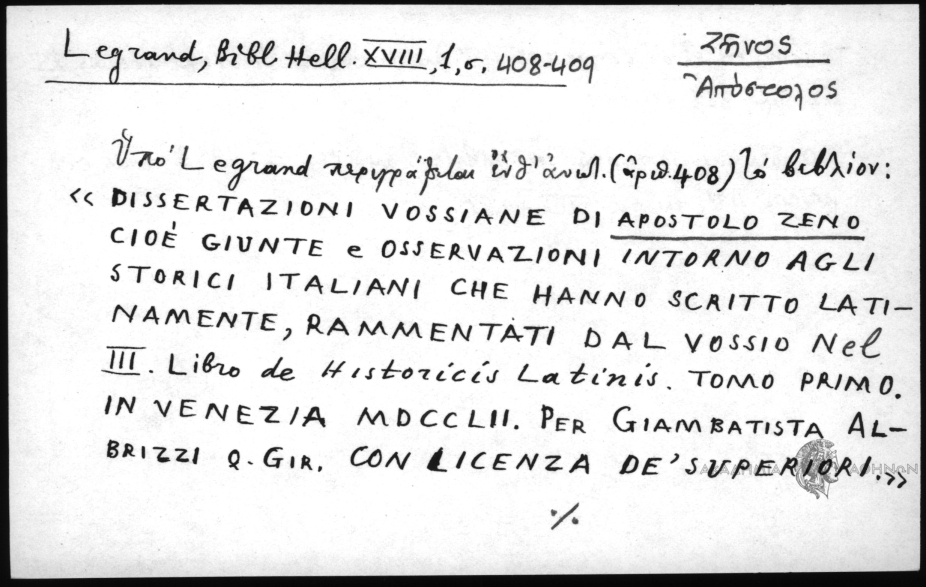 Legrand, Bibl Hell. XVIII, 1, σ. 408-409
Ζῆνος
Ἀπόστολος
Ὑπό Legrand περιγράφεται ὑπ' ἀριθ. (ἀριθ. 408) τό βιβλίον:
« DISSERTAZIONI VOSSIANE DI APOSTOLO ZENO
CIOÈ GIUNTE e OSSERVAZIONI INTORNO AGLI
STORICI ITALIANI CHE HANNO SCRITTO LATI-
NAMENTE, RAMMENTATI DAL VOSSIO Nel
III. Libro de Historicis Latinis. TOMO PRIMO.
IN VENEZIA MDCCLII. PER GIAMBATISTA AL-
BRIZZI Q. GIR. CON LICENZA DE' SUPERIORI.»
%